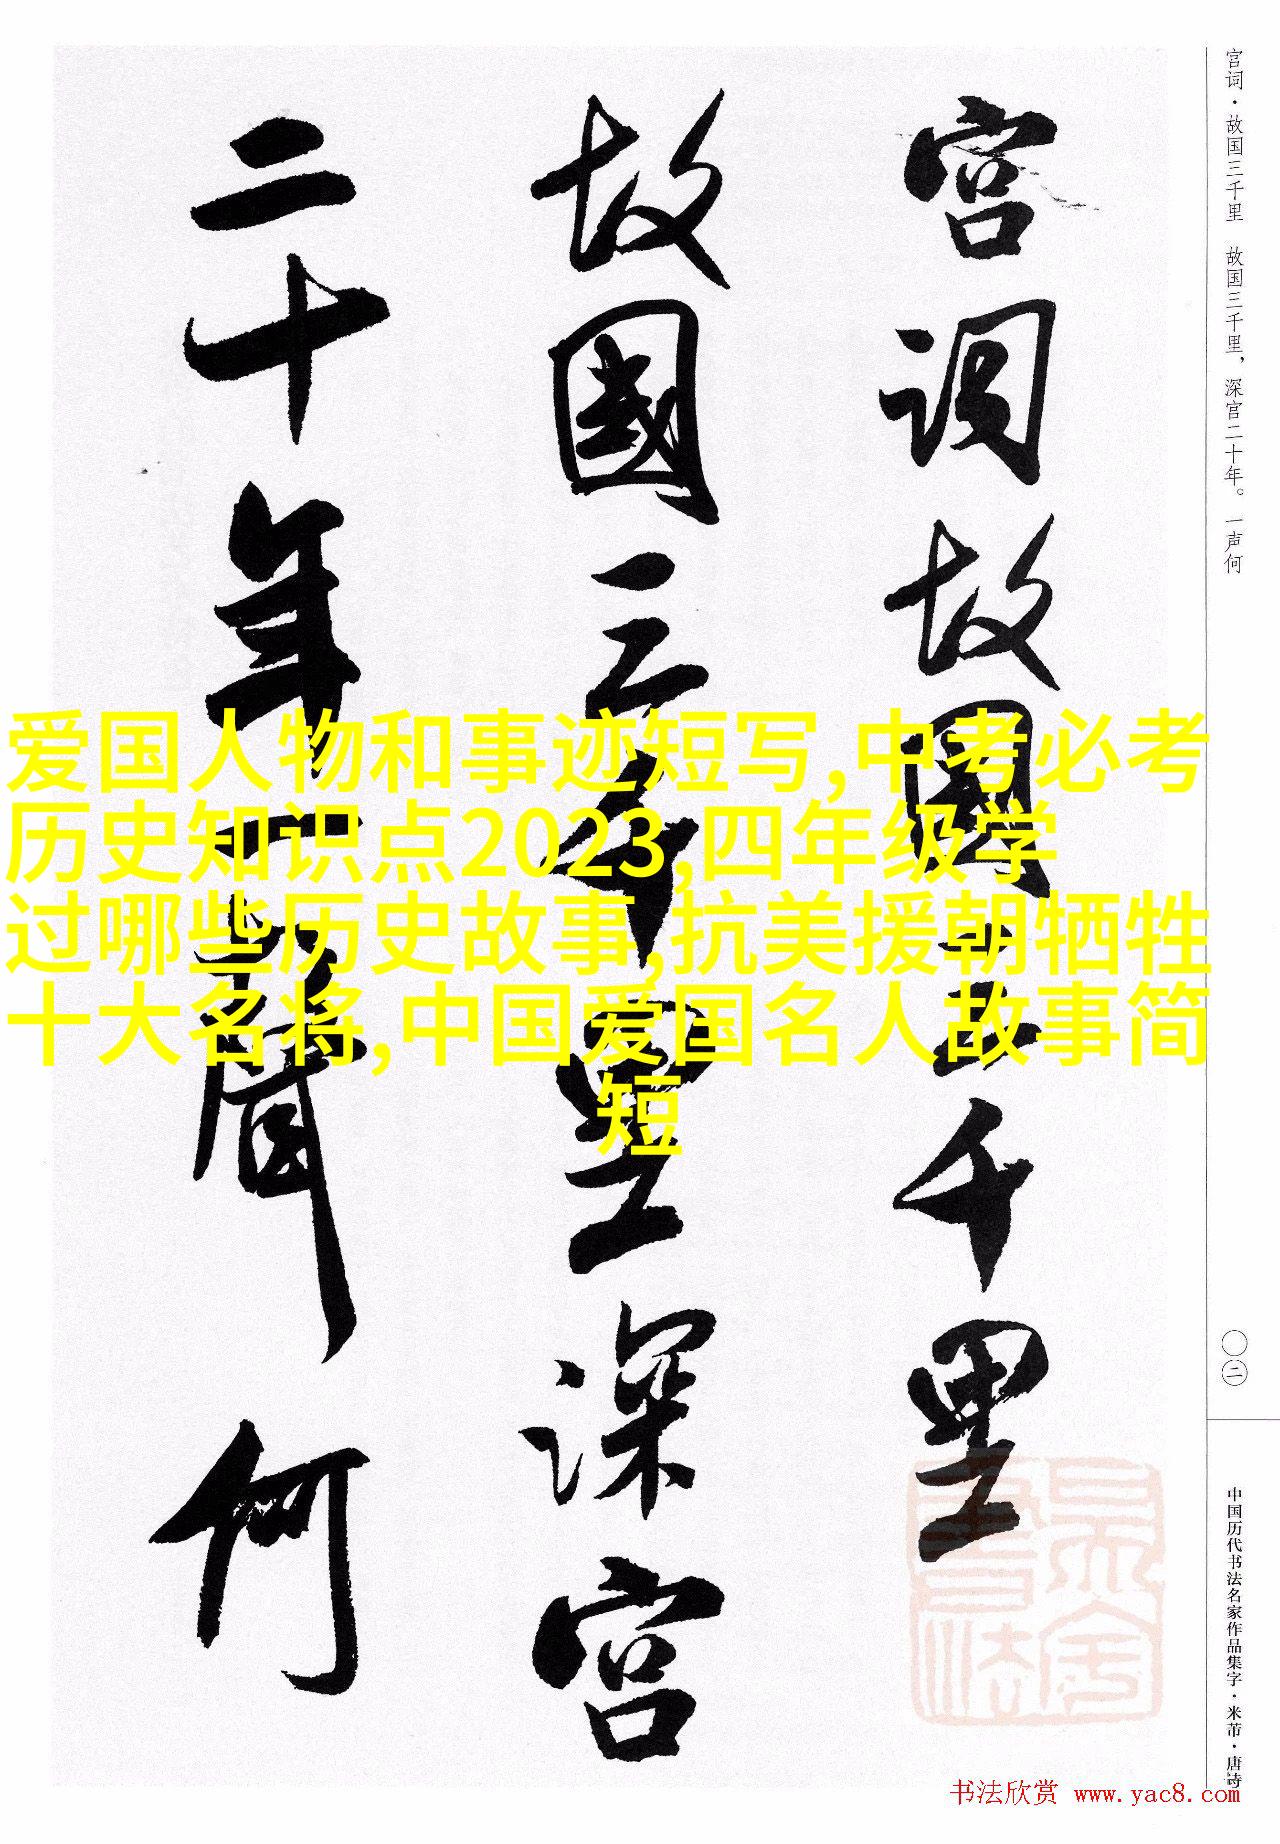 宫词故国三千里
故國三千里深宫
二十年一聲何
宫词·故国三千里 故国三千里，深宫二十年。一声何
〇二
中国历代书法名家作品集字·米芾·唐诗
爱国人物和事迹短写,中考必考
历史知识点2023,四年级学
过哪些历史故事,抗美援朝牺牲
十大名将,中国爱国名人故事简
短
书法欣赏 www.yac8.com